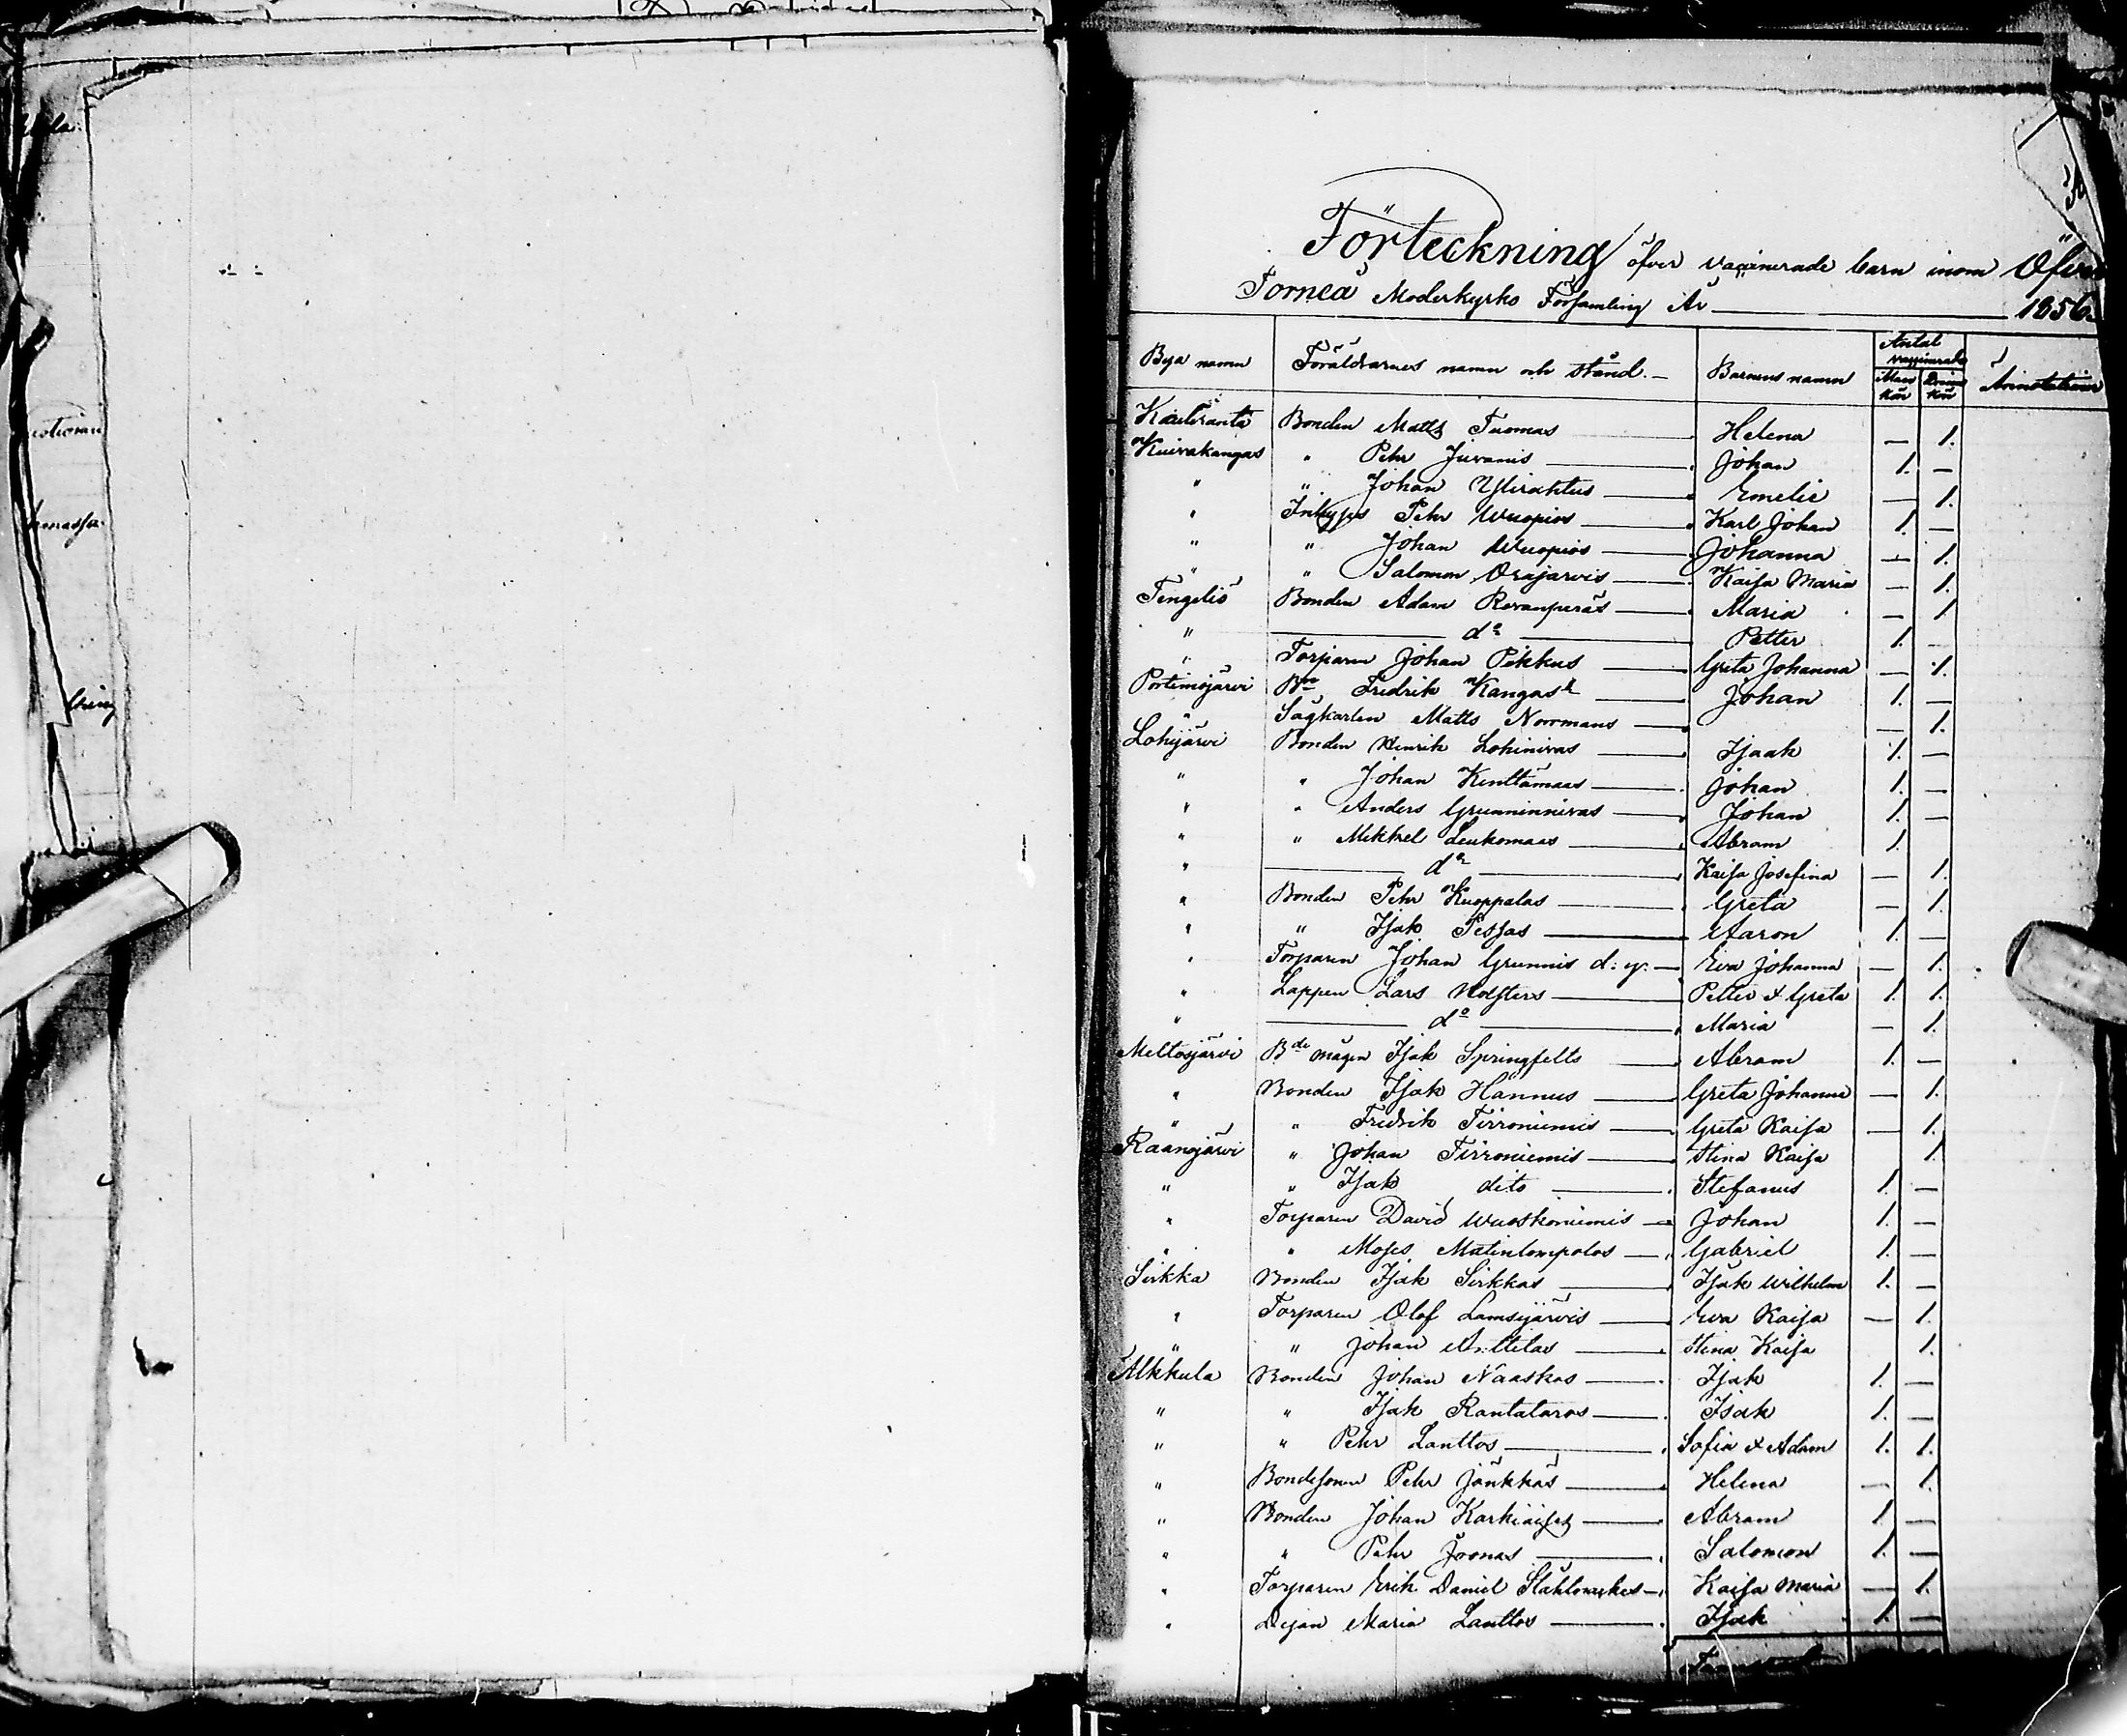 Förteckning öfver vaccinerade barn inom Öfver
Torneå Moderkyrko Församling År 1856.
Bya namn Föräldrarnes namn och stånd. Barnens namn Antal vaccinerade Mans kön Qvins kön Annotationer
Kauliranta Bonden Matts Tuomas Helena — 1.
Kuivakangas " Pehr Juvanis Johan 1. —
" " Johan Ylirahtus Emelie — 1.
" Inhyses Pehr Wuopios Karl Johan 1. —
" " Johan Wuopios Johanna — 1.
" " Salomon Orajarvis Kaisa Maria — 1.
Tengeliö Bonden Adam Rovanperäs Maria — 1
" do Petter 1. —
" Torparen Johan Pikkus Greta Johanna — 1.
Portimojärvi Bn Fredrik Kangas Johan 1. —
" Sågkarlen Matts Norrmans — 1.
Lohijärvi Bonden Henrik Lohinivas Isaak 1. —
" " Johan Kenttämaas Johan 1. —
" " Anders Grunninnivas Johan 1. —
" " Mikkel Leukomaas Abram 1.
" do Kaisa Josefina — 1.
" Bonden Pehr Kuoppalas Greta — 1.
" " Isak Pessas Aaron 1. —
" Torparen Johan Grunnis d: y. Eva Johanna — 1.
" Lappen Lars Holsters Petter & Greta 1. 1.
" do Maria — 1.
Meltosjärvi Bde mågen Isak Springfelts Abram 1. —
" Bonden Isak Hannus Greta Johanna — 1.
" " Fredrik Tirroniemis Greta Kaisa — 1.
Raanojärvi " Johan Tirroniemis Stina Kaisa 1.
" " Isak dito Stefanus 1. —
" Torparen David Wuoskoniemis Johan 1. —
" " Moses Matinlompolos Gabriel 1. —
Sirkka Bonden Isak Sirkkas Isak Wilhelm 1. —
" Torparen Olof Lamsijärvis Eva Kaisa — 1.
" " Johan Anttilas Stina Kaisa 1.
Alkkula Bonden Johan Naaskas Isak 1. —
" " Isak Rantataros Isak 1. —
" " Pehr Lanttos Sofia & Adam 1. 1.
" Bondesonen Pehr Jänkkäs Helena — 1.
" Bonden Johan Abram 1 —
" " Pehr Joonas Salomon 1. —
" Torparen Erik Daniel Kaisa Maria — 1.
" Pigan Maria Lanttos Isak 1. —